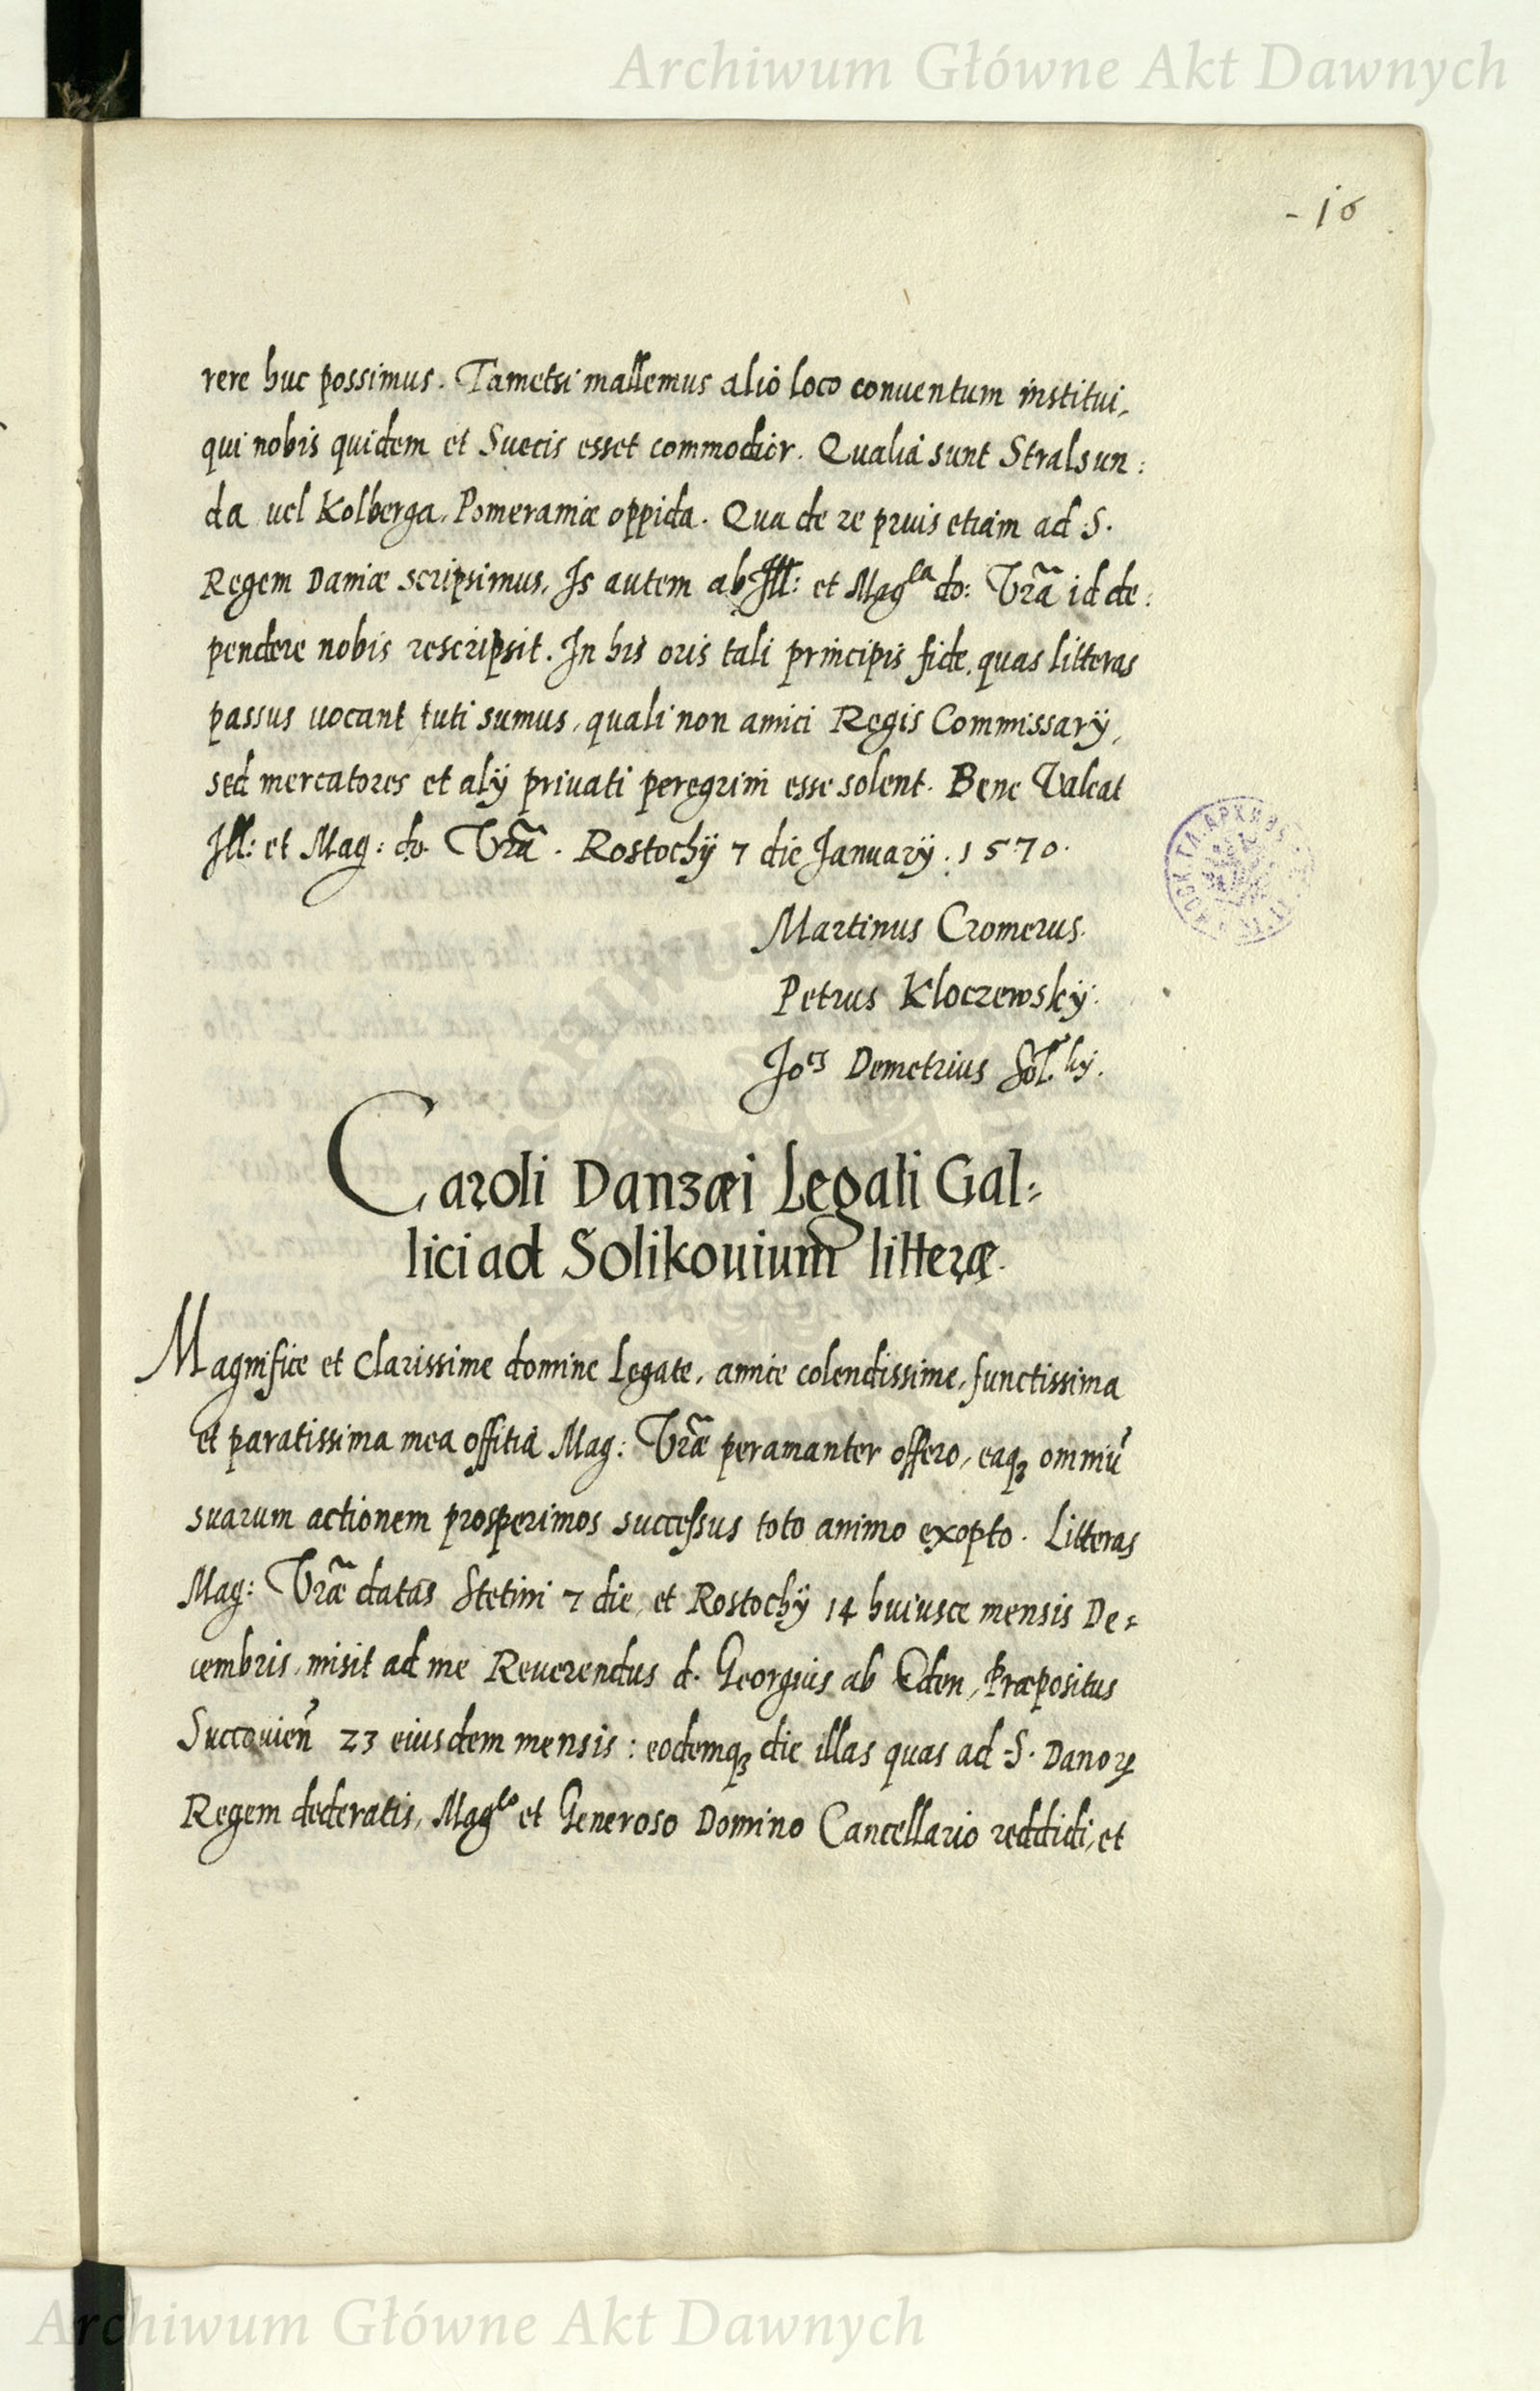 Archiwum Główne Akt Dawnych
- 16
rere huc possimus. Tametsi mallemus alio loco conuentum institui,
qui nobis quidem et Suecis esset commodior. Qualia sunt Stralsun:
da uel Kolberga, Pomeraniæ oppida. Qua de re prius etiam ad S.
Regem Daniæ scripsimus. Is autem ab Ill: et Mag^ca do: Vrã id de:
pendere nobis rescripsit. In his oris tali principis fide, quas litteras
passus uocant tuti sumus, quali non amici Regis Commissarÿ,
sed mercatores et alÿ priuati peregrini esse solent. Bene Valeat
Ill: et Mag: do. Vrã. Rostochÿ 7 die Januarÿ. 1570.
Martinus Cromerus.
Petrus Kloczewskÿ.
Jo^es Demetrius Sol^ky.
Caroli Danzæi Legati Gal:
lici ad Solikouium litteræ.
Magnifice et clarissime domine Legate, amice colendissime, functissima
et paratissima mea offitia Mag: Vræ̃ peramanter offero, eaq₃ omniũ
suarum actionem prosperimos successus toto animo exopto. Litteras
Mag: Vræ̃ datas Stetini 7 die, et Rostochÿ 14 huiusce mensis De:
cembris, misit ad me Reuerendus d. Georgius ab Eden, Præpositus
Succouieñ 23 eiusdem mensis: eodemq₃ die illas quas ad S. Danoꝝ
Regem dederatis, Mag^co et Generoso Domino Cancellario reddidi, et
Archiwum Główne Akt Dawnych